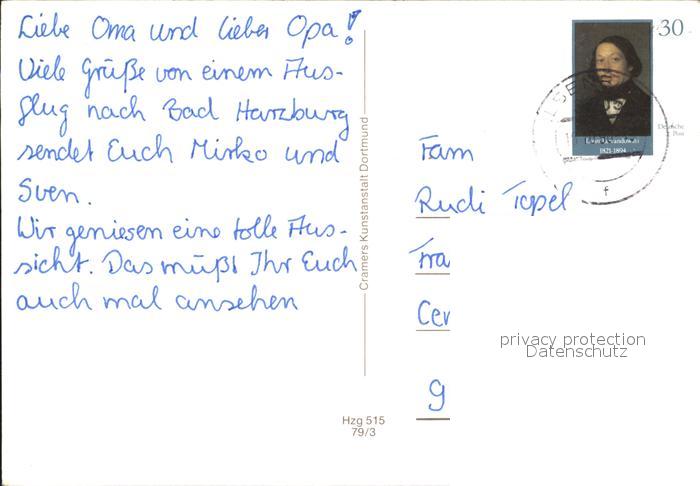 Liebe Oma und lieber Opa!
Viele Grüße von einem Aus-
flug nach Bad Harzburg
sendet Euch Mirko und
Sven.
Wir geniesen eine tolle Aus-
sicht. Das müßt Ihr Euch
auch mal ansehen
Cramers Kunstanstalt Dortmund
Hzg 515
79/3
30
Deutsche
Post
1821-1894
f
Fam
Rudi Topèl
Fra
Cer
9
privacy protection
Datenschutz